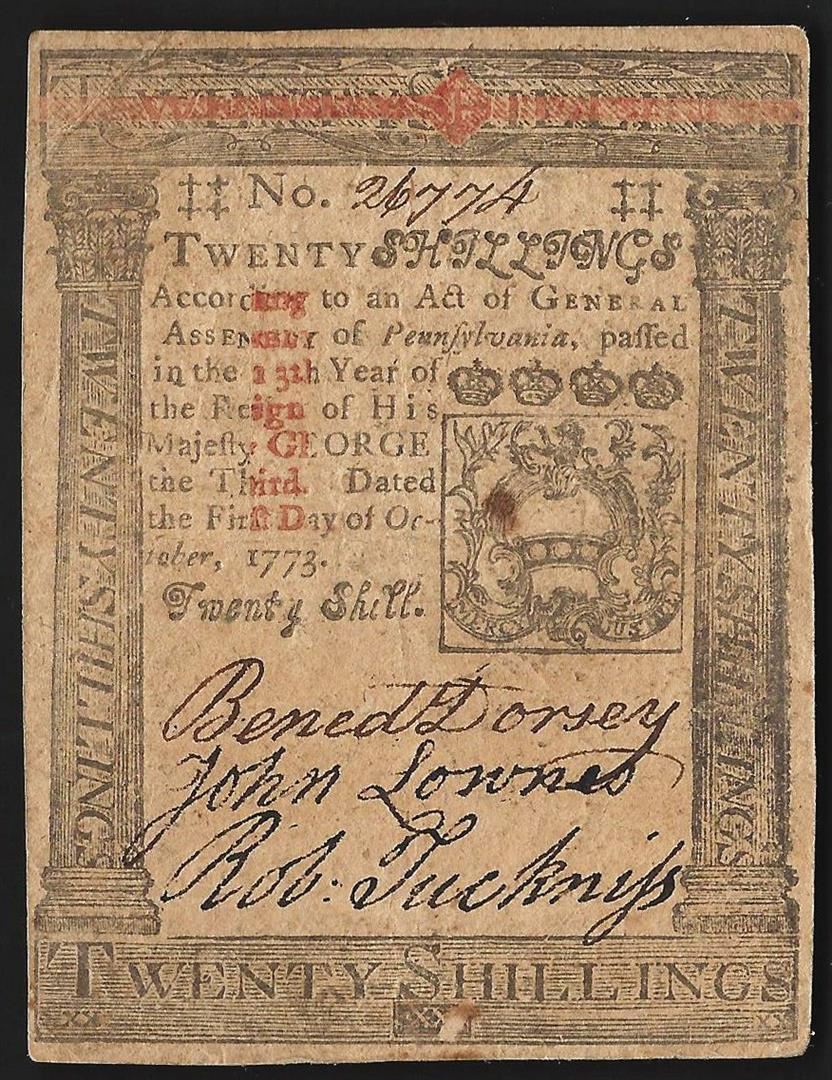 TWENTY SHILLINGS
‡‡ No. 26774 ‡‡
TWENTY SHILLINGS
According to an Act of GENERAL
ASSEMBLY of Pennſylvania, paſſed
in the 13th Year of
the Reign of His
Majeſty GEORGE
the Third. Dated
the Firſt Day of Oc-
tober, 1773.
Twenty Shill.
MERCY JUSTICE
TWENTY SHILLINGS
TWENTY SHILLINGS
Bened Dorsey
John Lownes
Rob: Tuckniſs
TWENTY SHILLINGS
XX XX XX